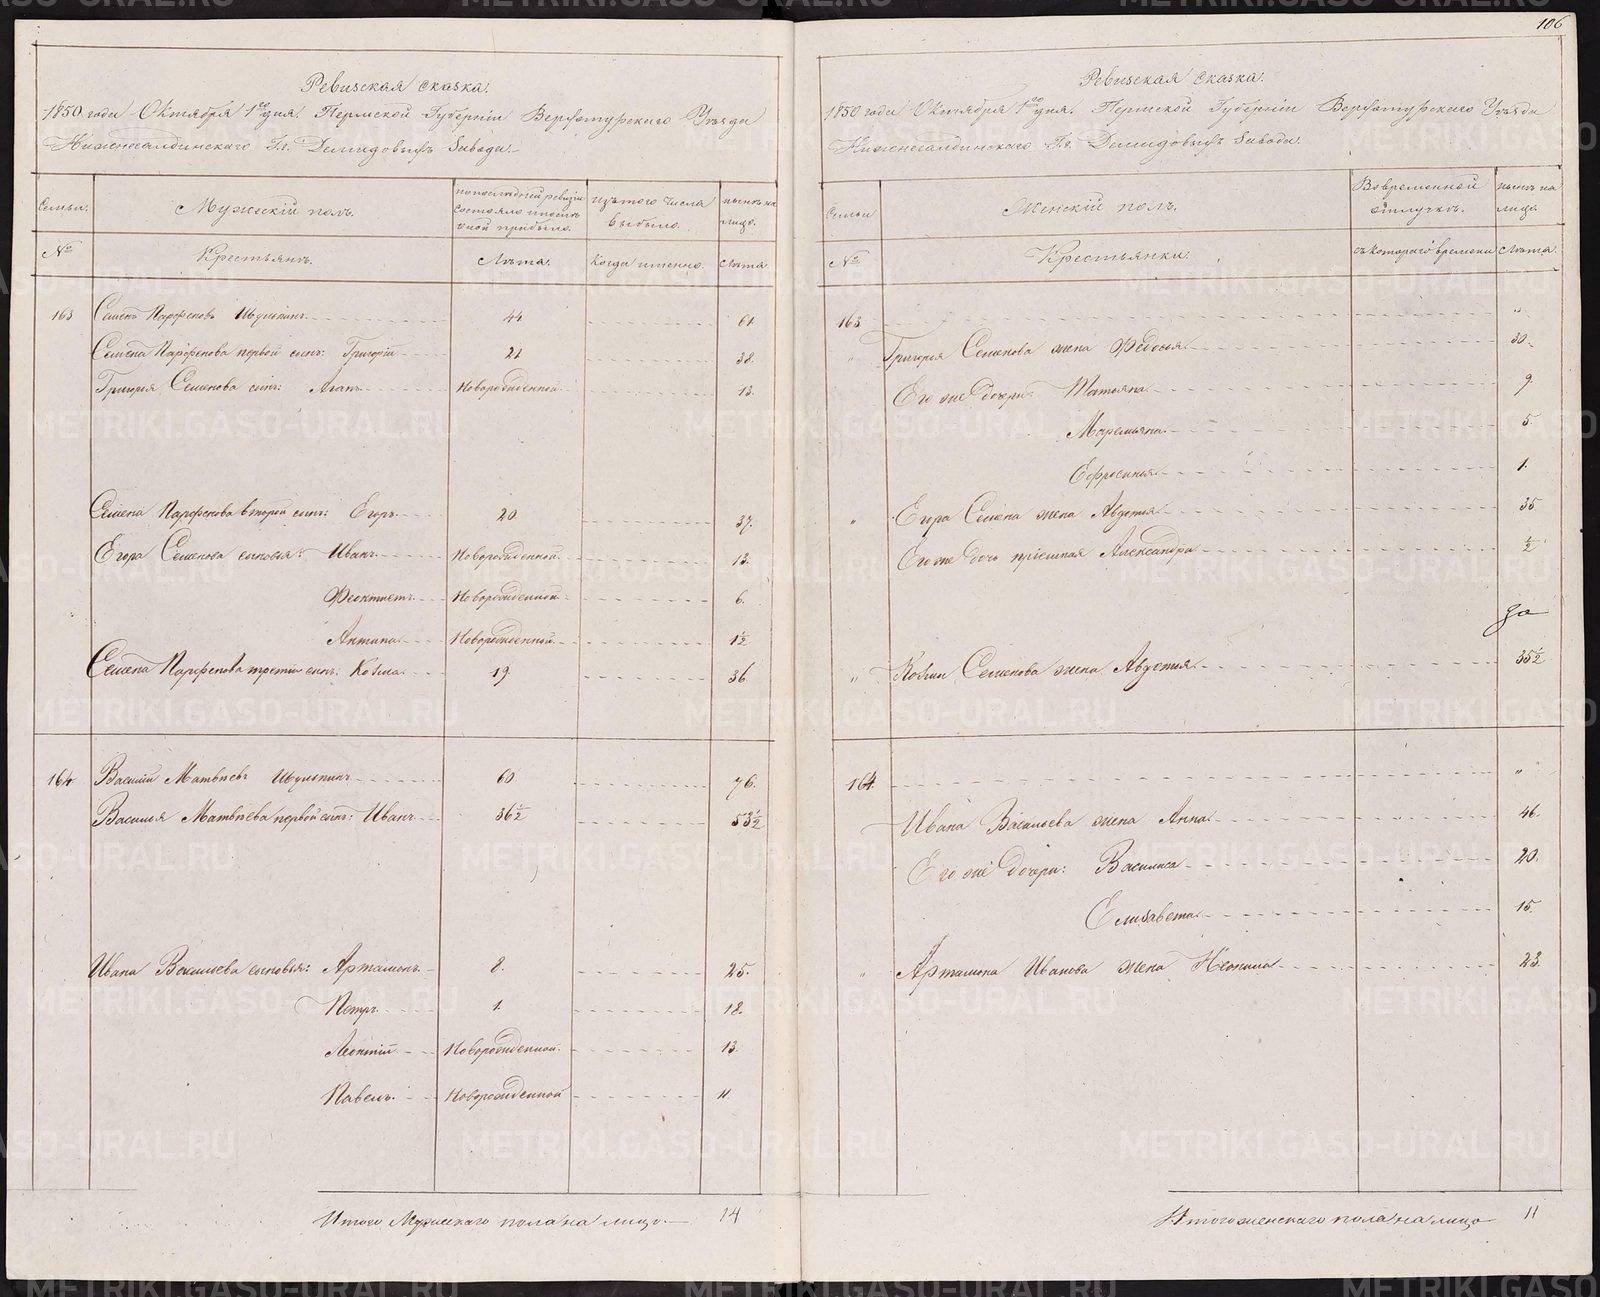 106
Ревизская сказка.
1850 года Октября 1го дня. Пермской Губерніи Верхотурскаго Уѣзда
Нижнесалдинскаго Гг. Демидовыхъ Завода.
Семьи. Мужескій полъ. по последней ревизіи состояло и после оной прибыло. изъ того числа выбыло. нынѣ на лицо.
№ Крестьянъ. Лѣта. Когда именно. Лѣта.
163 Семенъ Парфеновъ 44 61.
Семена Парфенова первой сынъ: Григорій 21 38.
Григорья Семенова сынъ: Агапъ Новорожденной 13.
Семена Парфенова второй сынъ: Егоръ 20 37.
Егора Семенова сыновья: Иванъ Новорожденной 13.
Феоктистъ Новорожденной 6.
Антипа Новорожденной 1½
Семена Парфенова третій сынъ: Козма 19 36
164 Василій Матвѣевъ 60 76.
Василья Матвѣева первой сынъ: Иванъ 36½ 53½
Ивана Васильева сыновья: Артамонъ 8. 25.
Петръ 1. 18.
Леонтій Новорожденной. 13.
Павелъ Новорожденной 11.
Итого Мужескаго пола на лицо 14
Ревизская сказка.
1850 года Октября 1го дня. Пермской Губерніи Верхотурскаго Уѣзда
Нижнесалдинскаго Гг. Демидовыхъ Завода.
Семьи Женскій полъ. Во временной отлучкѣ. нынѣ на лицо.
№ Крестьянки. съ котораго времени Лѣта.
163 "
" Григорья Семенова жена Федосья 30.
Его же дочери: Татьяна 9.
Маремьяна 5.
Ефросинья 1.
" Егора Семена жена Авдотья 35
Его же дочь пріемная Александра ½
" Козмы Семенова жена Авдотья 35½
164. "
Ивана Васильева жена Анна 46.
Его же дочери: Василиса 20.
Елизавета 15.
" Артамона Иванова жена Неонила 23.
Итого женскаго пола на лицо 11